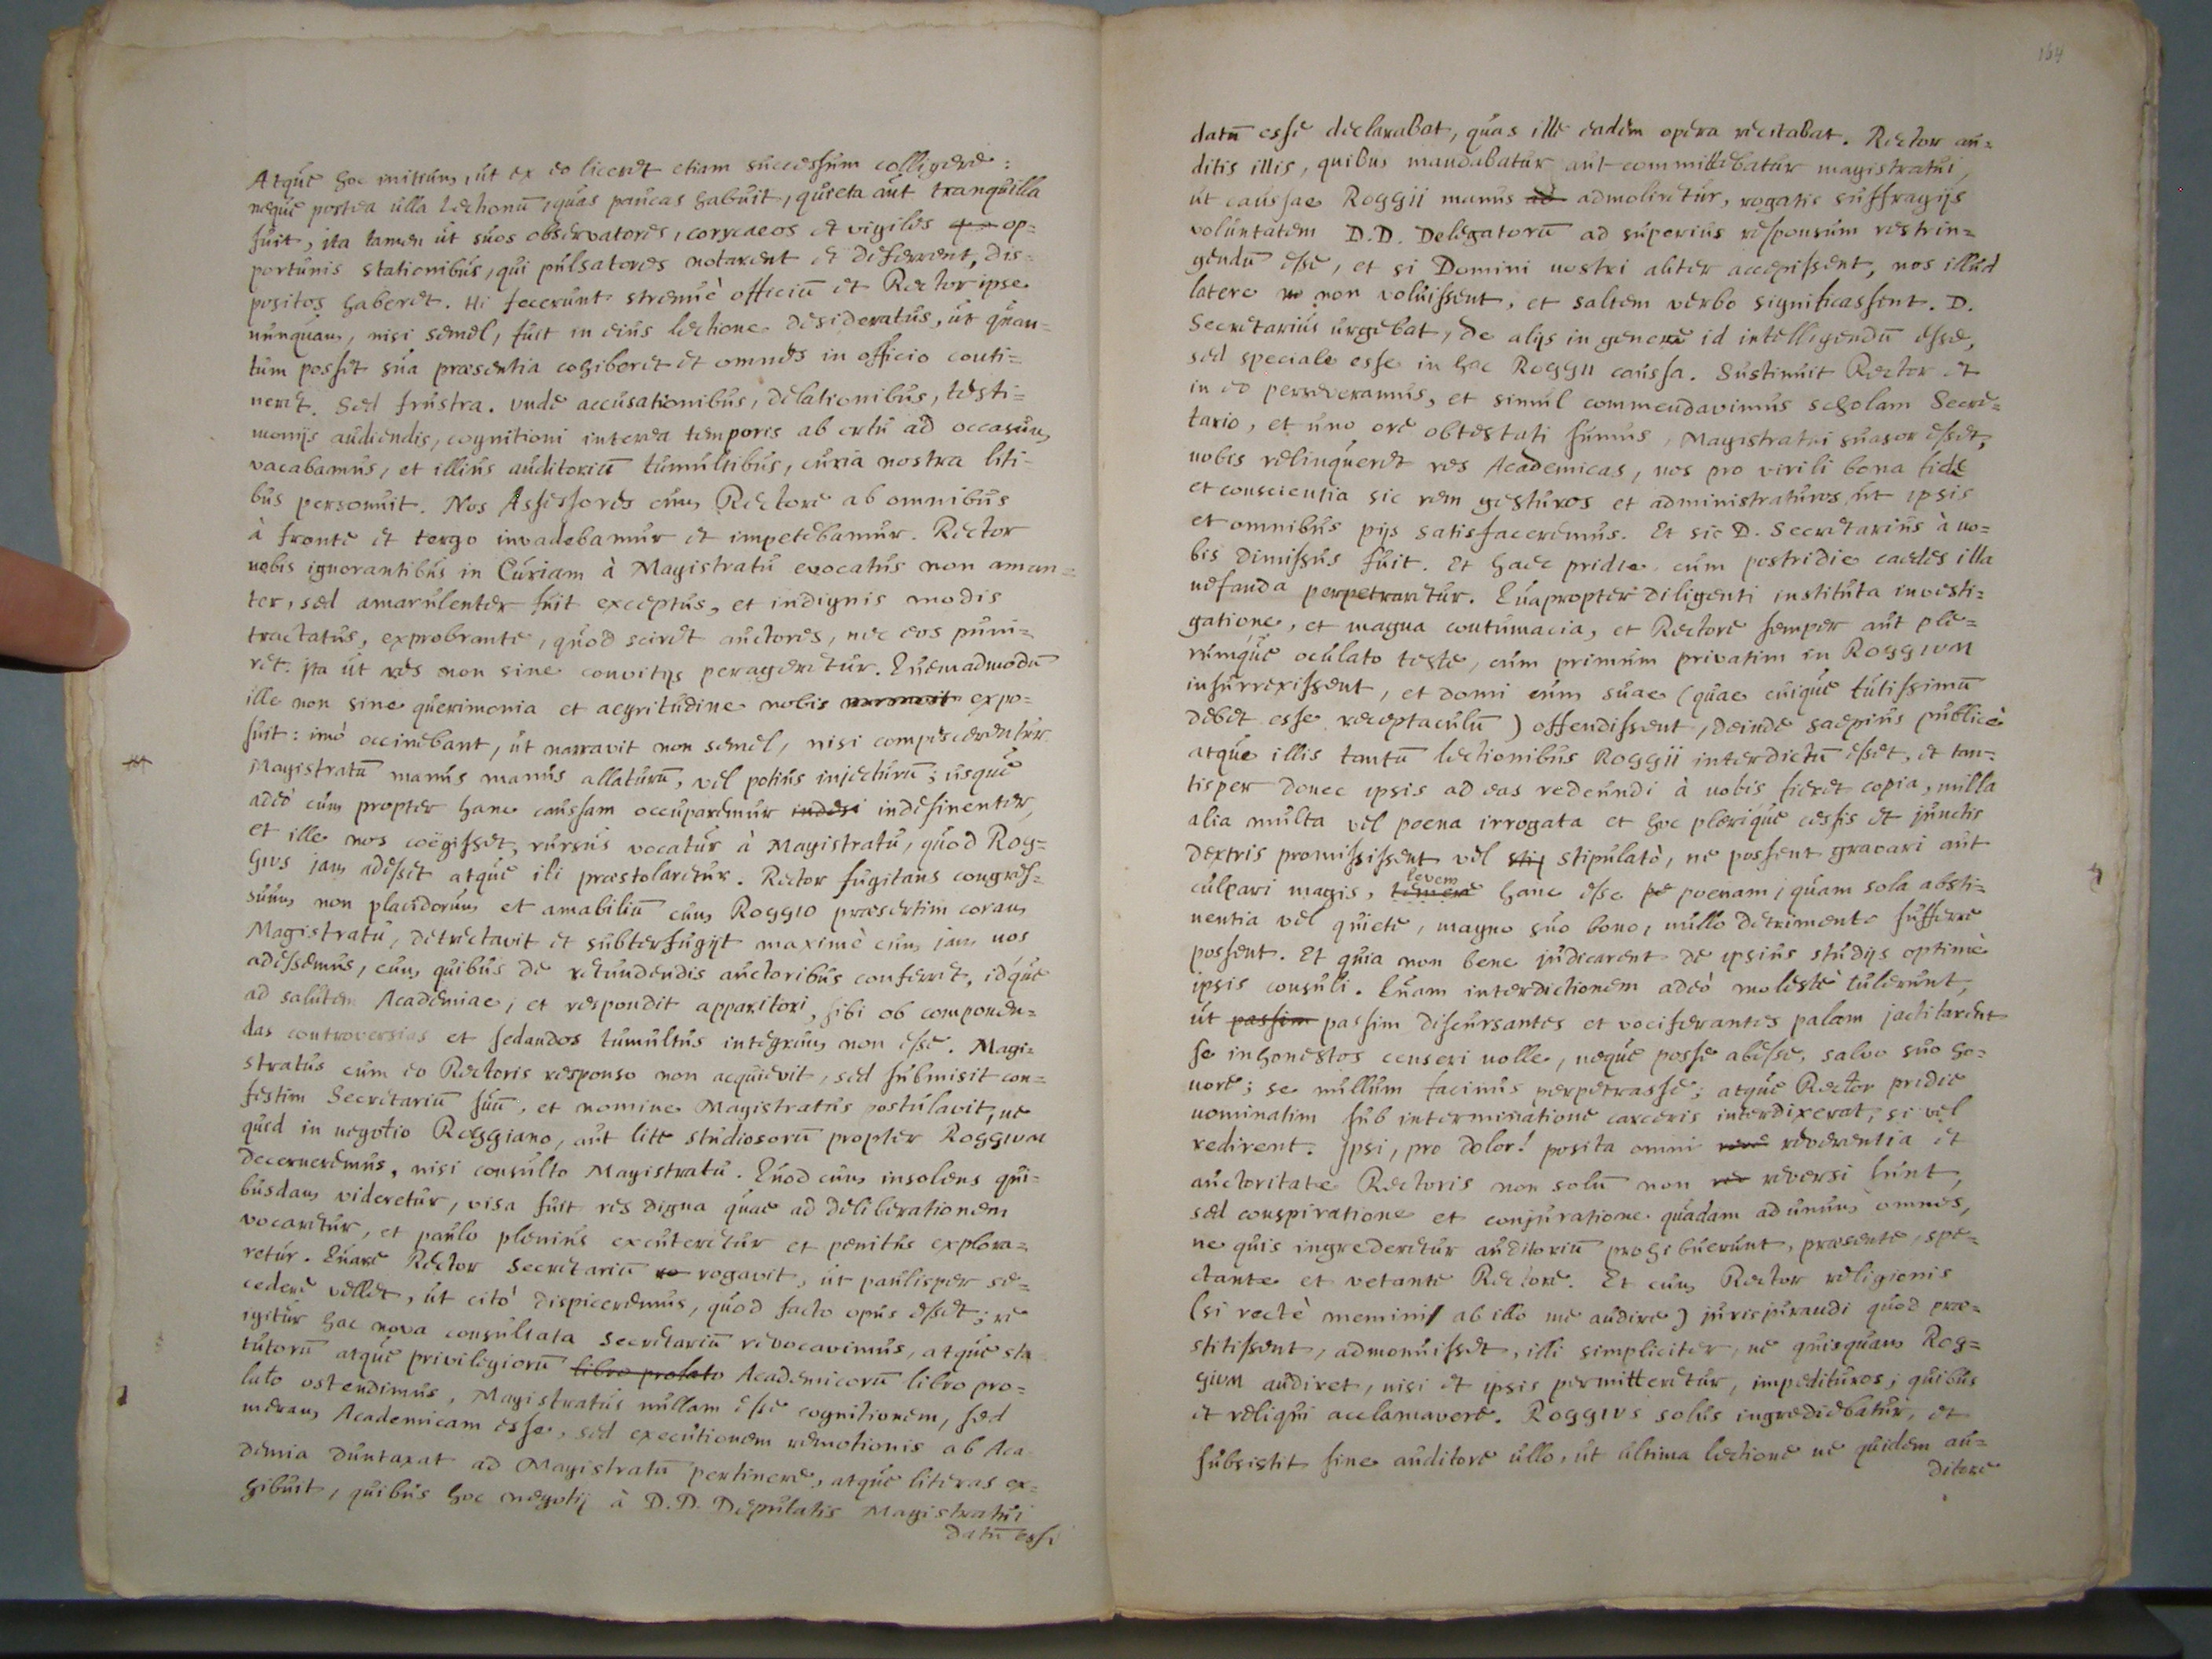 Atque hoc initium, ut ex eo liceret etiam successum colligere:
neque postea ulla lectionū, quas paucas habuit, quieta aut tranquilla
fuit, ita tamen ut suos observatores, corycaeos et vigiles op=
portunis stationibus, qui pulsatores notarent et deferrent, dis=
positos haberet. Hi fecerunt strenuè officiū et Rector ipse
nunquam, nisi semel, fuit in eius lectione desideratus, ut quan=
tum posset sua praesentia cohiberet et omnes in officio conti=
neret. Sed frustra. Unde accusationibus, delationibus, testi=
monijs audiendis, cognitioni interea temporis ab ortu ad occasum
vacabamus, et illius auditoriū tumultibus, curia nostra liti=
bus personuit. Nos Assessores cum Rectore ab omnibus
à fronte et tergo invadebamur et impetebamur. Rector
nobis ignorantibus in Curiam à Magistratu evocatus non aman=
ter, sed amarulenter fuit exceptus, et indignis modis
tractatus, exprobrante, quod sciret auctores, nec eos puni=
ret. ita ut res non sine convitijs perageretur. Quemadmodū
ille non sine querimonia et aegritudine nobis expo=
suit: imò occinebant, ut narravit non semel, nisi compescerentur
Magistratū manus manus allaturū, vel potius injecturū; usque
adeò cum propter hanc caussam occuparemur indesi indesinenter,
et ille nos coëgisset, rursus vocatur à Magistratu, quod Rog=
gius jam adesset atque ibi praestolaretur. Rector fugitans congres=
suum non placidorum et amabiliū cum Roggio praesertim coram
Magistratu, detrectavit et subterfugijt maximè cum jam nos
adessemus, cum quibus de retundendis auctoribus conferret, idque
ad salutem Academiae, et respondit apparitori, sibi ob componen=
das controversias et sedandos tumultus integrum non esse. Magi=
stratus cum eo Rectoris responso non acquievit, sed submisit con=
festim Secretariū suū, et nomine Magistratus postulavit, ne
quid in negotio Roggiano, aut lite studiosorū propter Roggium
decerneremus, nisi consulto Magistratu. Quod cum insolens qui=
busdam videretur, visa fuit res digna quae ad deliberationem
vocaretur, et paulo plenius excuteretur et penitus explora=
retur. Quare Rector Secretariū ro rogavit, ut paulisper se=
cedere vellet, ut citò dispiceremus, quod facto opus esset; re
igitur hac nova consultata Secretariū revocavimus, atque sta
tutorū atque privilegiorū libro prolato Academicorū libro pro=
lato ostendimus, Magistratus nullam esse cognitionem, sed
meram Academicam esse, sed executionem remotionis ab Aca
demia duntaxat ad Magistratū pertinere, atque literas ex=
hibuit, quibus hoc negotij à D.D. Deputatis Magistratui
datū esse
164
datū esse declarabat, quas ille eadem opera recitabat. Rector au=
ditis illis, quibus mandabatur aut committebatur magistratui,
ut caussae Roggii manus ad admoliretur, rogatis suffragijs
voluntatem D.D. Delegatorū ad superius responsum restrin=
gendū esse, et si Domini nostri aliter accepissent, nos illud
latere no non voluissent, et saltem verbo significassent. D.
Secretarius urgebat, de alijs in genere id intelligendū esse,
sed speciale esse in hac Roggii caussa. Sustinuit Rector et
in eo perseveramus, et simul commendavimus scholam Secre=
tario, et uno ore obtestati sumus, Magistratui suasor esset,
nobis relinqueret res Academicas, nos pro virili bona fide
et conscientia sic rem gesturos et administraturos, ut ipsis
et omnibus pijs satisfaceremus. Et sic D. Secretarius à no=
bis dimissus fuit. Et haec pridie, cum postridie caedes illa
nefanda perpetraretur. Quapropter diligenti instituta investi=
gatione, et magna contumacia, et Rectore semper aut ple=
rumque oculato teste, cum primum privatim in Roggium
insurrexissent, et domi eum suae (quae cuique tutissimū
debet esse receptaculū) offendissent, deinde saepius publicè
atque illis tantū lectionibus Roggii interdictū esset, et tan=
tisper donec ipsis ad eas redeundi à nobis fieret copia, nulla
alia multa vel poena irrogata et hoc plerique cessis et junctis
dextris promisissent vel stip stipulatò, ne possent gravari aut
culpari magis, temere levem hanc esse po poenam, quam sola absti=
nentia vel quiete, magno suo bono, nullo detrimento sufferre
possent. Et quia non bene judicarent de ipsius studijs optimè
ipsis consuli. Quam interdictionem adeò molestè tulerunt,
ut passim passim discursantes et vociferantes palam jactitarent
se inhonestos censeri nolle, neque posse abesse, salvo suo ho=
nore; se nullum facinus perpetrasse; atque Rector pridie
nominatim sub interminatione carceris interdixerat, si vel
redirent. Ipsi, pro dolor! posita omni reve reverentia et
auctoritate Rectoris non solū non re reversi sunt,
sed conspiratione et conjuratione quadam ad unum omnes,
ne quis ingrederetur auditoriū prohibuerunt, praesente, spe=
ctante et vetante Rectore. Et cum Rector religionis
(si rectè memini ab illo me audire) jurisjurandi quod prae=
stitissent, admonuisset, illi simpliciter, ne quisquam Rog=
gium audiret, nisi et ipsis permitteretur, impedituros; quibus
et reliqui acclamavere. Roggius solus ingrediebatur, et
subsistit sine auditore ullo, ut ultima lectione ne quidem au=
ditore